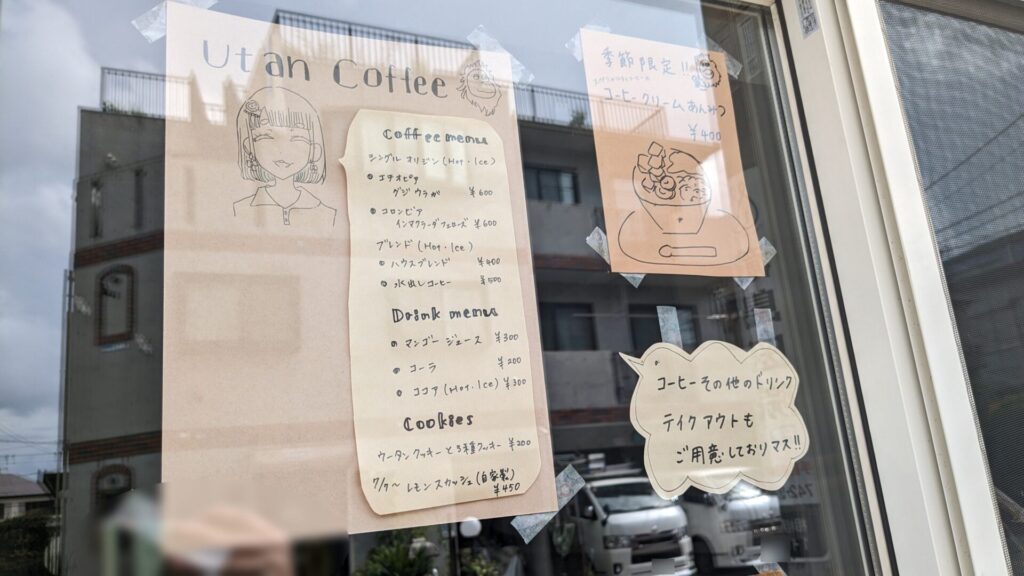 Utan Coffee
Coffee menu
シングルオリジン(Hot・Ice)
エチオピア
グジ ウラガ ¥600
コロンビア
インマクラーダフェローズ ¥600
ブレンド(Hot・Ice)
ハウスブレンド ¥400
水出しコーヒー ¥500
Drink menu
マンゴージュース ¥300
コーラ ¥200
ココア(Hot・Ice) ¥300
Cookies
ウータンクッキーと3種クッキー ¥200
7/7〜 レモンスカッシュ(自家製)
¥450
季節限定!!
コーヒークリームあんみつ
¥400
コーヒーその他のドリンク
テイクアウトも
ご用意しておりマス!!
742